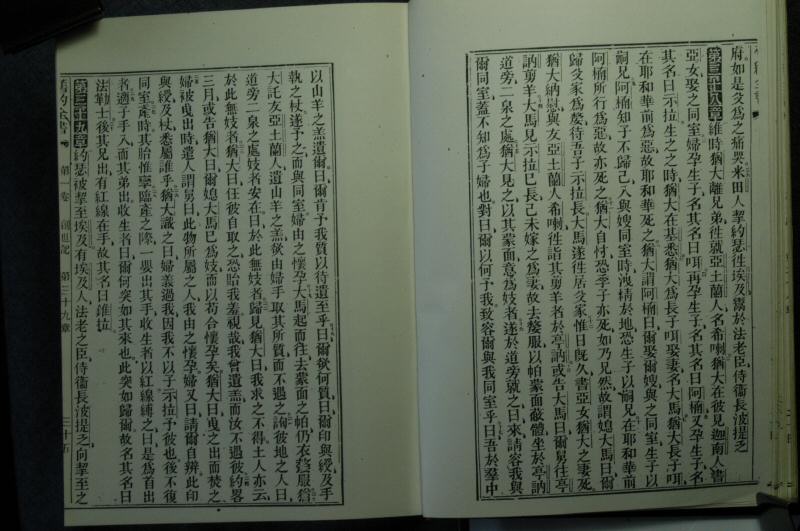 府如是父爲之痛哭米田人挈約瑟往埃及鬻於法老臣侍衞長波提乏
第三十八章維時猶大離兄弟往就亞土蘭人名希喇猶大在彼見迦南人書
亞女娶之同室婦孕生子名其名曰咡再孕生子名其名曰阿楠又孕生子名
其名曰示拉生之之時猶大在基悉猶大爲長子咡娶妻名大馬猶大長子咡
在耶和華前爲惡故耶和華死之猶大謂阿楠曰爾娶爾嫂與之同室生子以
嗣兄阿楠知子不歸己入與嫂同室時洩精於地恐生子以嗣兄在耶和華前
阿楠所行爲惡故亦死之猶大自忖恐季子亦死如乃兄然故謂媳大馬曰爾
歸父家爲嫠待吾子示拉長大馬遂往居父家惟日旣久書亞女猶大之妻死
猶大納慰與友亞土蘭人希喇往諳其剪羊名者於亭訥或告大馬曰爾舅往亭
訥剪羊大馬見示拉已長己未嫁之爲妻故去嫠服以帕蒙面蔽體坐於亭訥
道旁二泉之處猶大見之以其蒙面意爲妓者遂於道旁就之曰來請容我與
爾同室蓋不知爲子婦也對曰爾以何予我致容爾與我同室乎曰吾於羣中
以山羊之羔遣爾曰爾肯予我質以待遣至乎曰爾欲何質曰爾印與綬及手
執之杖遂予之而與同室婦由之懷孕大馬起而往去蒙面之帕仍衣嫠服猶
大託友亞土蘭人遣山羊之羔欲由婦手取其所質而不遇之詢彼地之人曰
道旁二泉之處妓者安在曰於此無妓者歸見猶大曰我求之不得土人亦云
於此無妓者猶大曰任彼自取之恐貽我羞視哉我曾遣羔而汝不遇彼約畧
三月或告猶大曰爾媳大馬已爲妓而以苟合懷孕矣猶大曰曳之出而焚之
婦被曳出時遣人謂舅曰此物所屬之人我由之懷孕婦又曰請爾自辨此印
與綬及杖悉屬誰乎猶大識之曰婦義過我因我不以子示拉予彼也後不復
同室產時其胎惟孿臨產之際一嬰出其手收生者以紅線縛之曰是爲首出
者適子手入而其弟出收生者曰爾何突如其來也此突如歸爾故名其名曰
法勒士後其兄出有紅線在手故其名曰錐拉
第三十九章約瑟被挈至埃及有埃及人法老之臣侍衞長波提乏向挈至之
舊約全書 第一卷 創世記 第三十九章 三十五